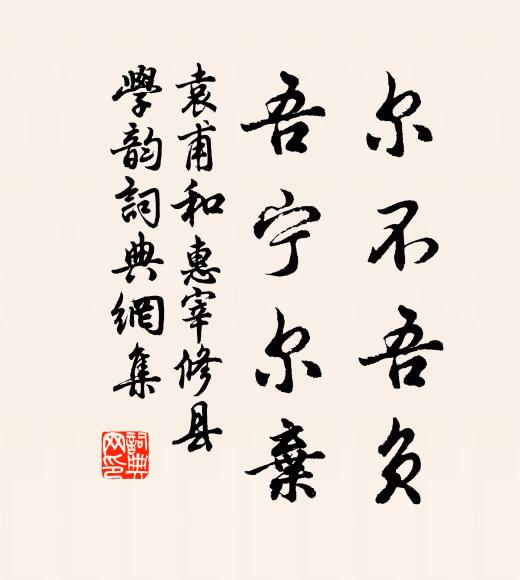 尔不吾负
吾宁尔棄
袁甫和惠宰修县
學韵詞典網集
詞典网印